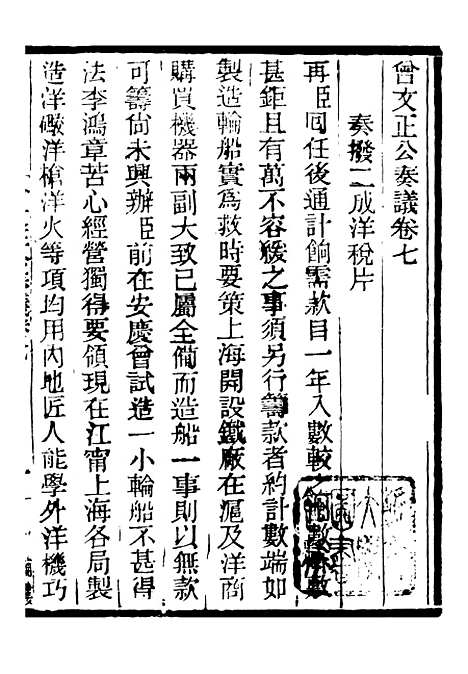 曾文正公奏議卷七
奏撥二成洋稅片
再臣回任後通計餉需款目一年入數較之出數懸數
甚鉅且有萬不容緩之事須另行籌款者約計數端如
製造輪船實爲救時要策上海開設鐵廠在滬及洋商
購買機器兩副大致已屬全備而造船一事則以無款
可籌尙未興辦臣前在安慶曾試造一小輪船不甚得
法李鴻章苦心經營獨得要領現在江甯上海各局製
造洋礮洋槍洋火等項均用內地匠人能學外洋機巧